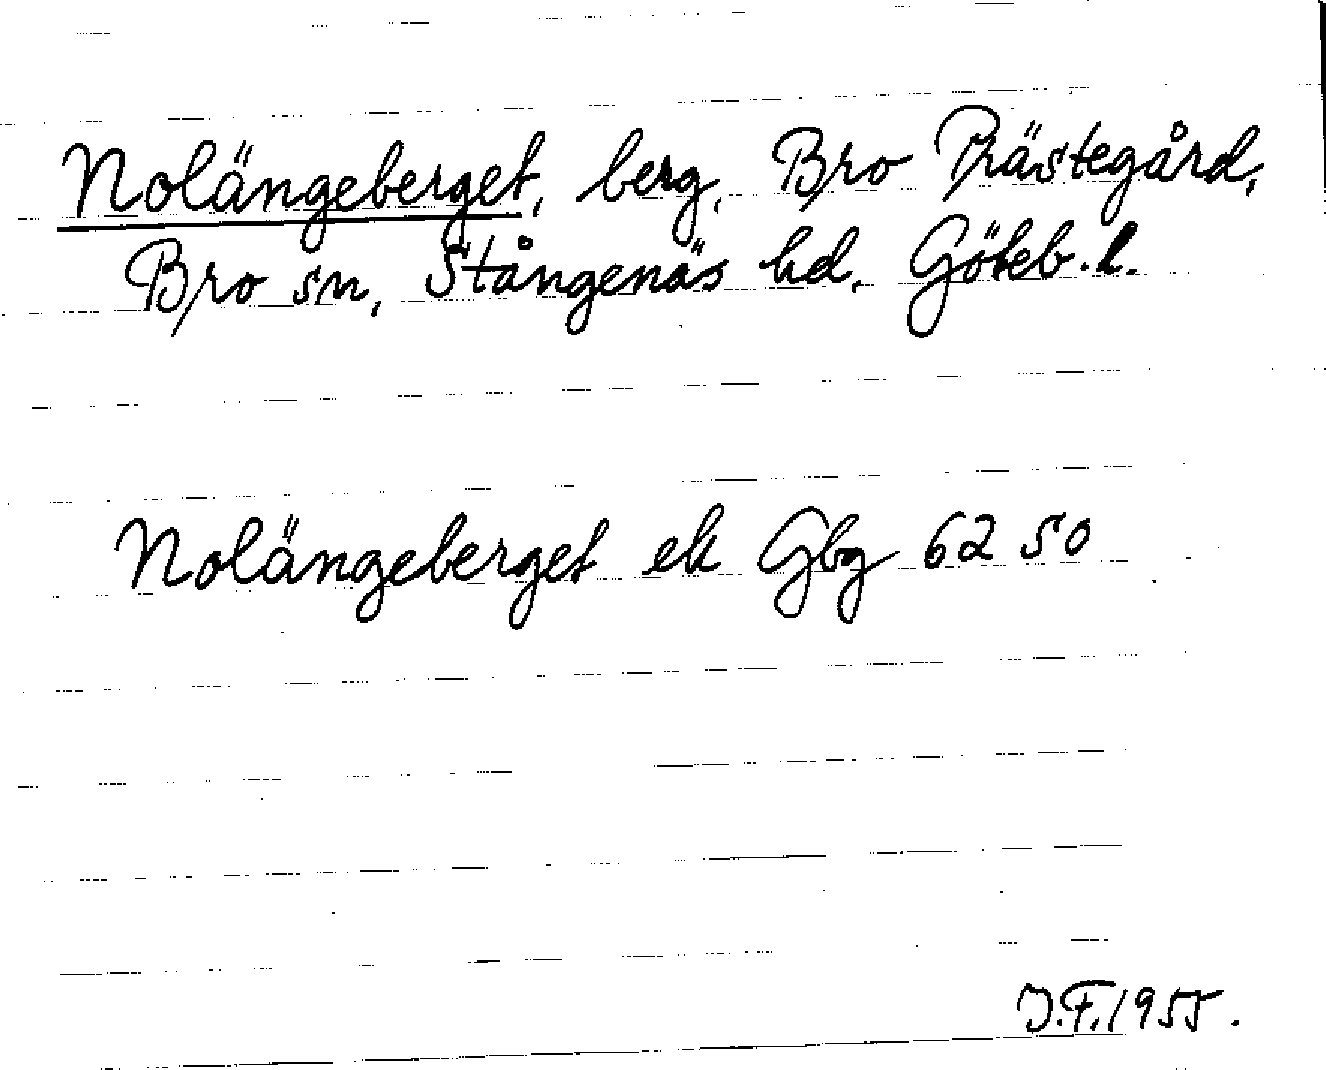 Nolängeberget, berg, Bro Prästegård,
Bro sn, Stångenäs hd, Göteb. l.
Nolängeberget ek Gbg 62 50
J.F. 1955.